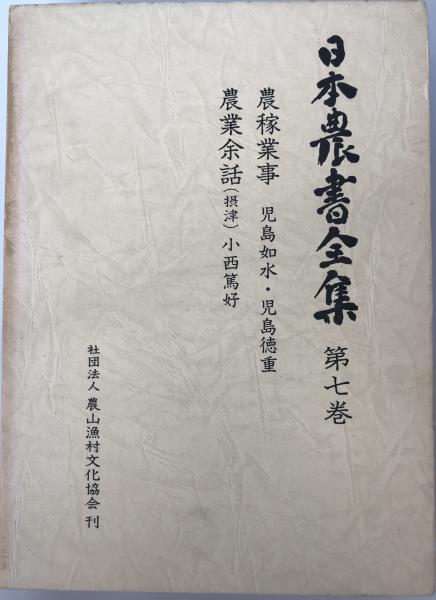 日本農書全集 第七巻
農稼業事 児島如水・児島徳重
農業余話(摂津)小西篤好
社団法人 農山漁村文化協会 刊